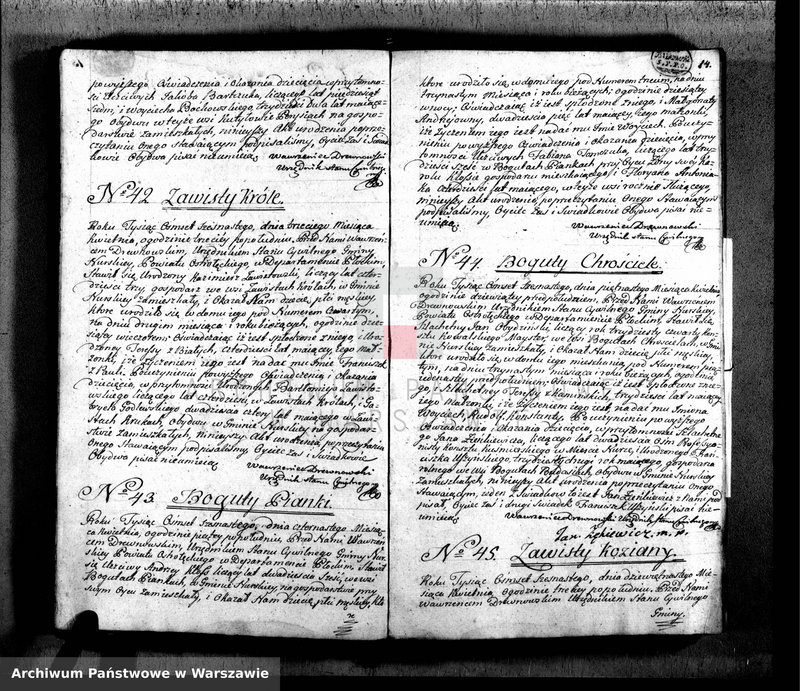 powyższego Oświadczenia i Okazania dziecięcia w przytomno-
ści Uczciwych Jakóba Bartczuka, liczącego lat pięćdziesiąt
siedm, i Woyciecha Bochowskiego trzydzieści dwa lat maiące-
go Obydwu w teyże wsi na gospo-
darstwie zamieszkałych, ninieyszy Akt urodzenia poprze-
czytaniu Onego stawaiącym podpisaliśmy, Oyciec zaś i Świad-
kowie Obydwa pisać nieumieią
Wawrzeniec Drewnowski
Urzędnik Stanu Cywilnego
No 42 Zawisty Króle.
Roku Tysiąc Ośmset Szesnastego, dnia trzeciego Miesiąca
Kwietnia, o godzinie trzeciey po południu. Przed Nami Wawrzeń-
cem Drewnowskim, Urzędnikiem Stanu Cywilnego Gminy
Nurskiey, Powiatu Ostrołęckiego, w Departamencie Płockim,
Stawił się Urodzony Kazimierz Zawistowski, liczący lat czter-
dzieści trzy, gospodarz we wsi Zawistach Królach, w Gminie
Nurskiey zamieszkały, i Okazał Nam dziecię płci męskiey,
które urodziło się w domu iego pod Numerem Czwartym,
na dniu drugim miesiąca i roku bieżących, o godzinie dzie-
siątey wieczorem; Oświadczaiąc iż iest spłodzone z niego i Uro-
dzoney Teressy z Białych, czterdzieści lat maiącey, iego mał-
żonki, iż życzeniem iego iest nadać mu Imie Franciszek
z Pauli. Po uczynieniu powyższego Oświadczenia i Okazania
dziecięcia, w przytomności Urodzonych Bartłomieia Zawisto-
wskiego liczącego lat czterdzieści, w Zawistach Królach, i Ga-
bryela Godlewskiego dwadzieścia cztery lat maiącego w Zawi-
stach Krukach, Obydwu w Gminie Nurskiey na gospodar-
stwie zamieszkałych, ninieyszy Akt urodzenia, po przeczytaniu
Onego Stawaiącym podpisaliśmy, Oyciec zaś i Świadkowie
Obydwa pisać nieumieią
Wawrzeniec Drewnowski
Urzędnik Stanu Cywilnego
No 43. Boguty Pianki.
Roku Tysiąc Ośmset Szesnastego, dnia czternastego Miesią-
ca Kwietnia, o godzinie piątey po południu, Przed Nami Wawrzeń-
cem Drewnowskim, Urzędnikiem Stanu Cywilnego Gminy Nur-
skiey Powiatu Ostrołęckiego w Departamencie Płockim, Stawił
się Uczciwy Andrzey liczący lat dwadzieścia Sześć, we wsi
Bogutach Piankach, w Gminie Nurskiey, na gospodarstwie przy
swym Oycu zamieszkały, i Okazał Nam dziecię płci męskiey, któ-
re
14.
które urodziło się w domu iego pod Numerem trzecim, na dniu
trzynastym Miesiąca i roku bieżących; o godzinie dziesiątey
w nocy; Oświadczaiąc iż iest spłodzone z niego, i Małgorzaty
Andrzejowny, dwadzieścia pięć lat maiącey, iego małżonki,
iż życzeniem iego iest nadać mu Imie Woyciech. Po uczy-
nieniu powyższego Oświadczenia i Okazania dziecięcia, w przy-
tomności Uczciwych Fabiana liczącego lat trzy-
dzieści sześć w Bogutach Piankach przy Oycu
gospodarza mieszkaiącego, i Floryana Antonia-
ka czterdzieści lat maiącego, w teyże wsi rocznie służącego,
ninieyszy Akt urodzenia, po przeczytaniu Onego Stawaiącym
podpisaliśmy, Oyciec zaś i Świadkowie Obydwa pisać nie-
umieią
Wawrzeniec Drewnowski
Urzędnik Stanu Cywilnego
No 44. Boguty Chrościele.
Roku Tysiąc Ośmset Szesnastego, dnia piętnastego Miesiąca kwietnia,
o godzinie dziewiątey przed południem. Przed Nami Wawrzeńcem
Drewnowskim Urzędnikiem Stanu Cywilnego Gminy Nurskiey,
Powiatu Ostrołęckiego w Departamencie Płockim, Stawił się
Szlachetny Jan Obydziński, liczący rok trzydziesty czwarty, kon-
sztu Kowalskiego Maystor, we wsi Bogutach Chrościelach, w Gmi-
nie Nurskiey Zamieszkały, i Okazał Nam dziecię płci męskiey,
które urodziło się w domku iego mieszkania, pod Numerem piąt-
tym, na dniu trzynastym miesiąca i roku bieżących, o godzinie
iedenastey przed południem; Oświadczaiąc iż iest spłodzone z nie-
go, i Szlachetney Teressy z Kamińskich, trzydzieści lat maiącey
iego Małżonki, i iż życzeniem iego iest nadać mu Imiona
Woyciech, Rudolf, Konstanty. Po uczynieniu powyższego
Oświadczenia i Okazania dziecięcia, w przytomności Szlachetne-
go Jana Zęnkiewicza, liczącego lat dwadzieścia Ośm
w Mieście Nurze, i Urodzonego Fran-
ciszka Uszyńskiego, trzydziesty drugi rok maiącego, gospodarza
rolnego we wsi Bogutach Obydwu w Gminie Nurskiey
zamieszkałych, ninieyszy Akt urodzenia po przeczytaniu Onego
Stawaiącym, ieden z Świadków to iest Jan Zęnkiewicz z Nami pod-
pisał, Oyciec zaś i drugi Świadek Franciszek Uszyński pisać nie-
umieią
Wawrzeniec Drewnowski Urzędnik Stanu Cywilnego
Jan Zękiewicz m. p.
No 45. Zawisty Koziany.
Roku Tysiąc Ośmset Szesnastego, dnia dziewiętnastego Mie-
siąca Kwietnia, o godzinie trzeciey po południu. Przed Nami
Wawrzeńcem Drewnowskim Urzędnikiem Stanu Cywilnego
Gminy
Archiwum Państwowe w Warszawie